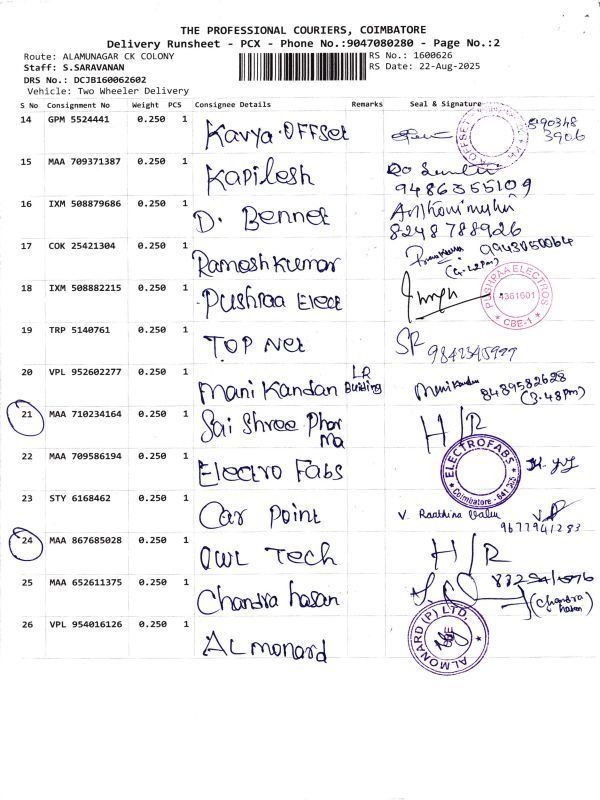 THE PROFESSIONAL COURIERS, COIMBATORE
Delivery Runsheet - PCX - Phone No.:9047080280 - Page No.:2
Route: ALAMUNAGAR CK COLONY RS No.: 1600626
Staff: S.SARAVANAN RS Date: 22-Aug-2025
DRS No.: DCJB160062602
Vehicle: Two Wheeler Delivery
S No Consignment No Weight PCS Consignee Details Remarks Seal & Signature
14 GPM 5524441 0.250 1 Kavya.OFFSet 3906
15 MAA 709371387 0.250 1 Kapilesh
9486355109
16 IXM 508879686 0.250 1 D. Bennet
8248788926
17 COK 25421304 0.250 1 Rameshkumar 9943050064
18 IXM 508882215 0.250 1 Pushpaa Elect PUSHPAA ELECTROS 4361601 CBE-1
19 TRP 5140761 0.250 1 TOP Net SR
20 VPL 952602277 0.250 1 Mani Kandan LR Building Manikandan 8489582628
(3.48pm)
21 MAA 710234164 0.250 1 Sai Shree Pharma H/R
22 MAA 709586194 0.250 1 Electro Fabs ELECTROFABS Coimbatore
23 STY 6168462 0.250 1 Car Point V.
9677941283
24 MAA 867685028 0.250 1 OWL Tech H/R
25 MAA 652611375 0.250 1 Chandra hasan
(Chandra hasan)
26 VPL 954016126 0.250 1 ALmonard ALMONARD (P) LTD,